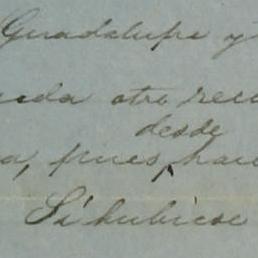 Guadalupe y
otro
desde
a, pues, hac
Si hubiese